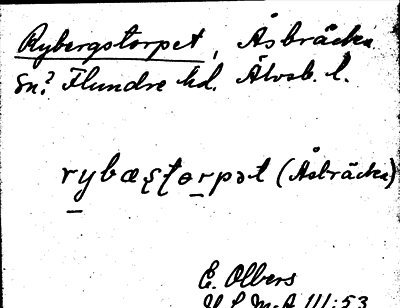 Rybergstorpet, Åsbräcka
sn? Flundre hd. Älvsb. l.
rybæʂʈorpət (Åsbräcka)
E. Olbers